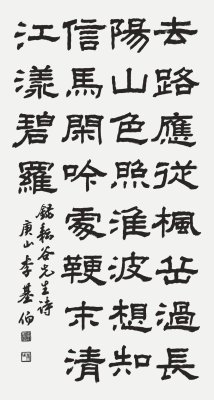 去路應從楓岳過長
陽山色照淮波想知
信馬閑吟處鞭末清
江漾碧羅
錄耘谷先生詩
庚山李基伯